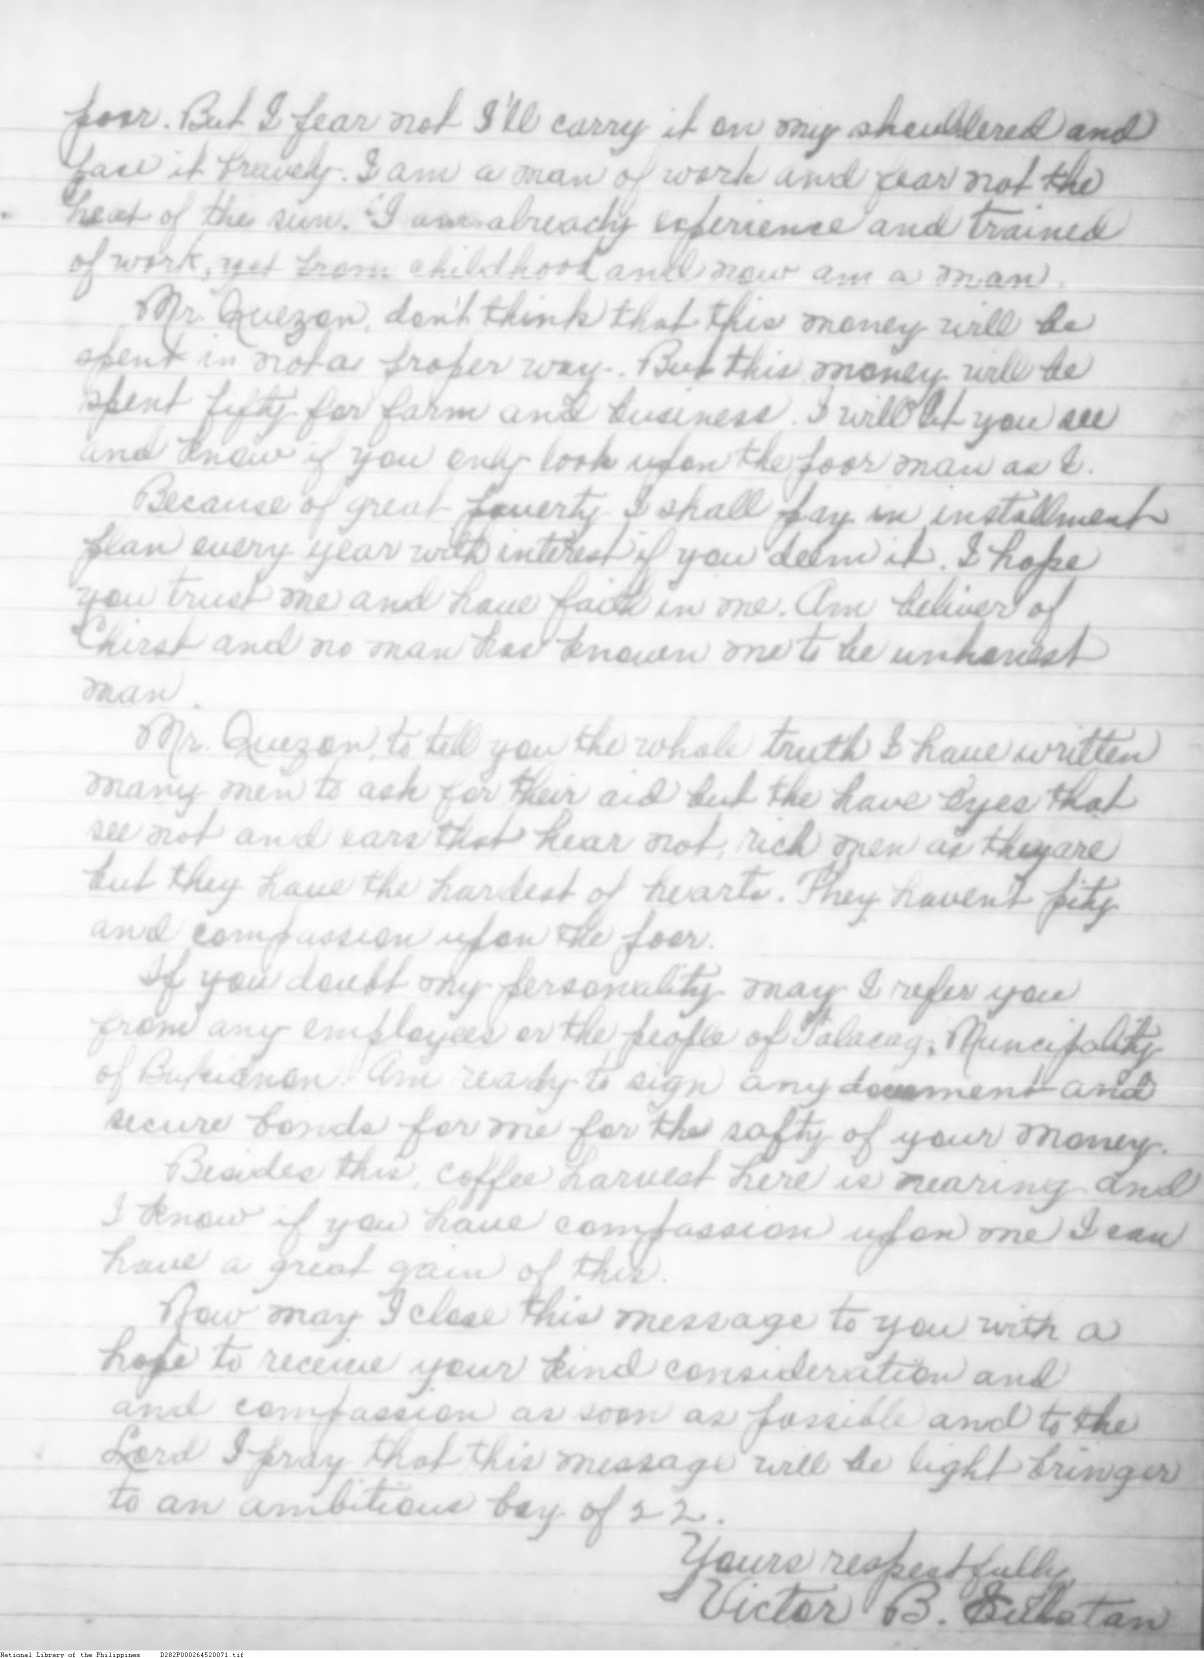 poor. But I fear not I'll carry it on my shouldered and
face it bravely. I am a man of work and fear not the
heat of the sun. I am already experience and trained
of work, yet from childhood and now am a man.
Mr. Quezon, don't think that this money will be
spent in not a proper way. But this money will be
spent fifty for farm and business. I will let you see
and know if you only look upon the poor man as I.
Because of great poverty I shall pay in installment
plan every year with interest if you deem it. I hope
you trust me and have faith in me. Am beliver of
Chirst and no man has known me to be unhonest
man.
Mr. Quezon, to tell you the whole truth I have written
many men to ask for their aid but the have eyes that
see not and ears that hear not, rich men as they are
but they have the hardest of hearts. They haven't pity
and compassion upon the poor.
If you doubt my personality may I refer you
from any employees or the people of Talacag, Muncipality
of Bukidnon. Am ready to sign any document and
secure bonds for me for the safty of your money.
Besides this, coffee harvest here is nearing and
I know if you have compassion upon me I can
have a great gain of this.
Now may I close this message to you with a
hope to receive your kind consideration and
and compassion as soon as possible and to the
Lord I pray that this message will be light bringer
to an ambitious boy of 22.
Yours respectfully,
Victor B.
National Library of the Philippines D282P000264520071.tif